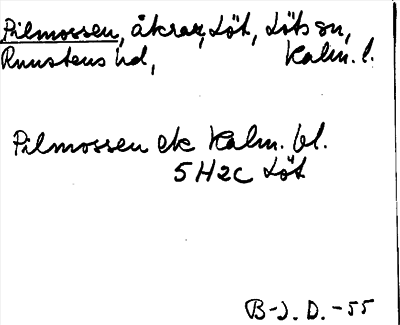 Pilmossen, åkrar, Löt, Löts sn,
Runstens hd, Kalm. l.
Pilmossen ek Kalm. bl.
5H2c Löt
B-J. D. -55